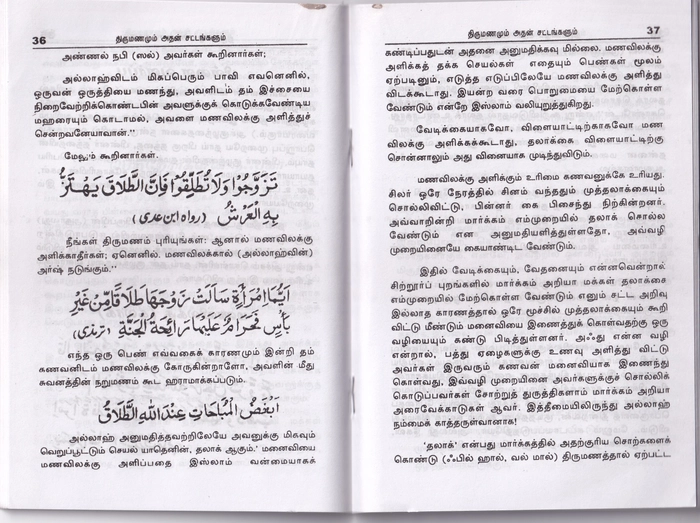 36
திருமணமும் அதன் சட்டங்களும்
அண்ணல் நபி (ஸல்) அவர்கள் கூறினார்கள்;
அல்லாஹ்விடம் மிகப்பெரும் பாவி எவனெனில்,
ஒருவன் ஒருத்தியை மணந்து, அவளிடம் தம் இச்சையை
நிறைவேற்றிக்கொண்டபின் அவளுக்குக் கொடுக்கவேண்டிய
மஹரையும் கொடாமல், அவளை மணவிலக்கு அளித்துச்
சென்றவனேயாவான்.”
மேலும் கூறினார்கள்.
تَزَوَّجُوا وَلَا تُطَلِّقُوا فَإِنَّ الطَّلَاقَ يَهْتَزُّ
بِهِ الْعَرْشُ (رواه ابن عدى)
நீங்கள் திருமணம் புரியுங்கள்: ஆனால் மணவிலக்கு
அளிக்காதீர்கள்; ஏனெனில், மணவிலக்கால் (அல்லாஹ்வின்)
அர்ஷ் நடுங்கும்.”
اَيُّمَا امْرَأَةٍ سَأَلَتْ زَوْجَهَا طَلَاقًا مِّنْ غَيْرِ
بَأْسٍ فَحَرَامٌ عَلَيْهَا رَائِحَةُ الْجَنَّةِ (ترمذى)
எந்த ஒரு பெண் எவ்வகைக் காரணமும் இன்றி தம்
கணவனிடம் மணவிலக்கு கோருகின்றாளோ, அவளின் மீது
சுவனத்தின் நறுமணம் கூட ஹராமாக்கப்படும்.
اَبْغَضُ الْمُبَاحَاتِ عِنْدَ اللهِ الطَّلَاقُ
அல்லாஹ் அனுமதித்தவற்றிலேயே அவனுக்கு மிகவும்
வெறுப்பூட்டும் செயல் யாதெனின், தலாக் ஆகும்.’ மனைவியை
மணவிலக்கு அளிப்பதை இஸ்லாம் வன்மையாகக்
திருமணமும் அதன் சட்டங்களும்
37
கண்டிப்பதுடன் அதனை அனுமதிக்கவு மில்லை. மணவிலக்கு
அளிக்கத் தக்க செயல்கள் எதையும் பெண்கள் மூலம்
ஏற்படினும், எடுத்த எடுப்பிலேயே மணவிலக்கு அளித்து
விடக்கூடாது. இயன்ற வரை பொறுமையை மேற்கொள்ள
வேண்டும் என்றே இஸ்லாம் வலியுறுத்துகிறது.
வேடிக்கையாகவோ, விளையாட்டிற்காகவோ மண
விலக்கு அளிக்கக்கூடாது. தலாக்கை விளையாட்டிற்கு
சொன்னாலும் அது வினையாக முடிந்துவிடும்.
மணவிலக்கு அளிக்கும் உரிமை கணவனுக்கே உரியது.
சிலர் ஒரே நேரத்தில் சினம் வந்ததும் முத்தலாக்கையும்
சொல்லிவிட்டு, பின்னர் கை பிசைந்து நிற்கின்னர்.
அவ்வாறின்றி மார்க்கம் எம்முறையில் தலாக் சொல்ல
வேண்டும் என அனுமதியளித்துள்ளதோ, அவ்வழி
முறையினையே கையாண்டிட வேண்டும்.
இதில் வேடிக்கையும், வேதனையும் என்னவென்றால்
சிற்றூர்ப் புறங்களில் மார்க்கம் அறியா மக்கள் தலாக்கை
எம்முறையில் மேற்கொள்ள வேண்டும் எனும் சட்ட அறிவு
இல்லாத காரணத்தால் ஒரே மூச்சில் முத்தலாக்கையும் கூறி
விட்டு மீண்டும் மனைவியை இணைத்துக் கொள்வதற்கு ஒரு
வழியையும் கண்டு பிடித்துள்ளனர். அஃது என்ன வழி
என்றால், பத்து ஏழைகளுக்கு உணவு அளித்து விட்டு
அவர்கள் இருவரும் கணவன் மனைவியாக இணைந்து
கொள்வது, இவ்வழி முறையினை அவர்களுக்குச் சொல்லிக்
கொடுப்பவர்கள் சோற்றுத் துருத்திகளாம் மார்க்கம் அறியா
அரைவேக்காடுகள் ஆவர். இத்தீமையிலிருந்து அல்லாஹ்
நம்மைக் காத்தருள்வானாக!
‘தலாக்’ என்பது மார்க்கத்தில் அதற்குரிய சொற்களைக்
கொண்டு (ஃபில் ஹால், வல் மால்) திருமணத்தால் ஏற்பட்ட